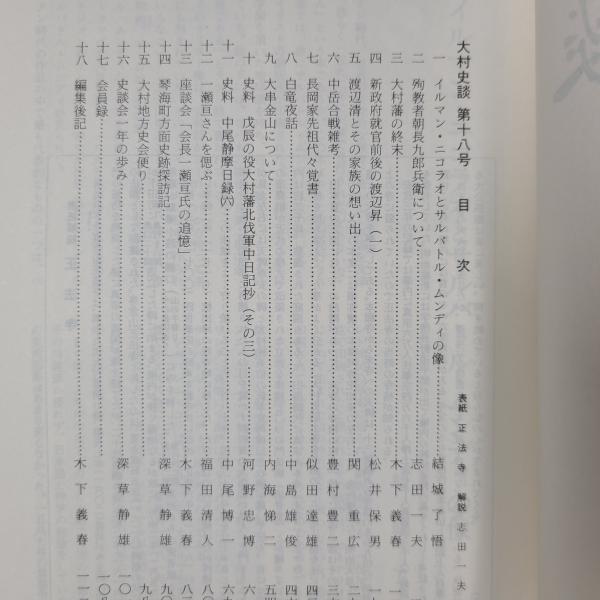 大村史談 第十八号 目次
表紙 正法寺 解説 志田一夫
一 イルマン・ニコラオとサルバトル・ムンディの像 結城了悟
二 殉教者朝長九郎兵衛について 志田一夫
三 大村藩の終末 木下義春
四 新政府就官前後の渡辺昇(一) 松井保男
五 渡辺清とその家族の想い出 関重広
六 中岳合戦雑考 豊村豊二
七 長岡家先祖代々覚書 似田達雄
八 白竜夜話 中島雄俊
九 大串金山について 内海悌二
十 史料 戊辰の役大村藩北伐軍中日記抄(その三) 河野忠博
十一 史料 中尾静摩日録㈥ 中尾博一
十二 一瀬亘さんを偲ぶ 福田清人
十三 座談会「会長一瀬亘氏の追憶」 木下義春
十四 琴海町方面史跡探訪記 深草静雄
十五 大村地方史会便り
十六 史談会一年の歩み 深草静雄
十七 会員録
十八 編集後記 木下義春